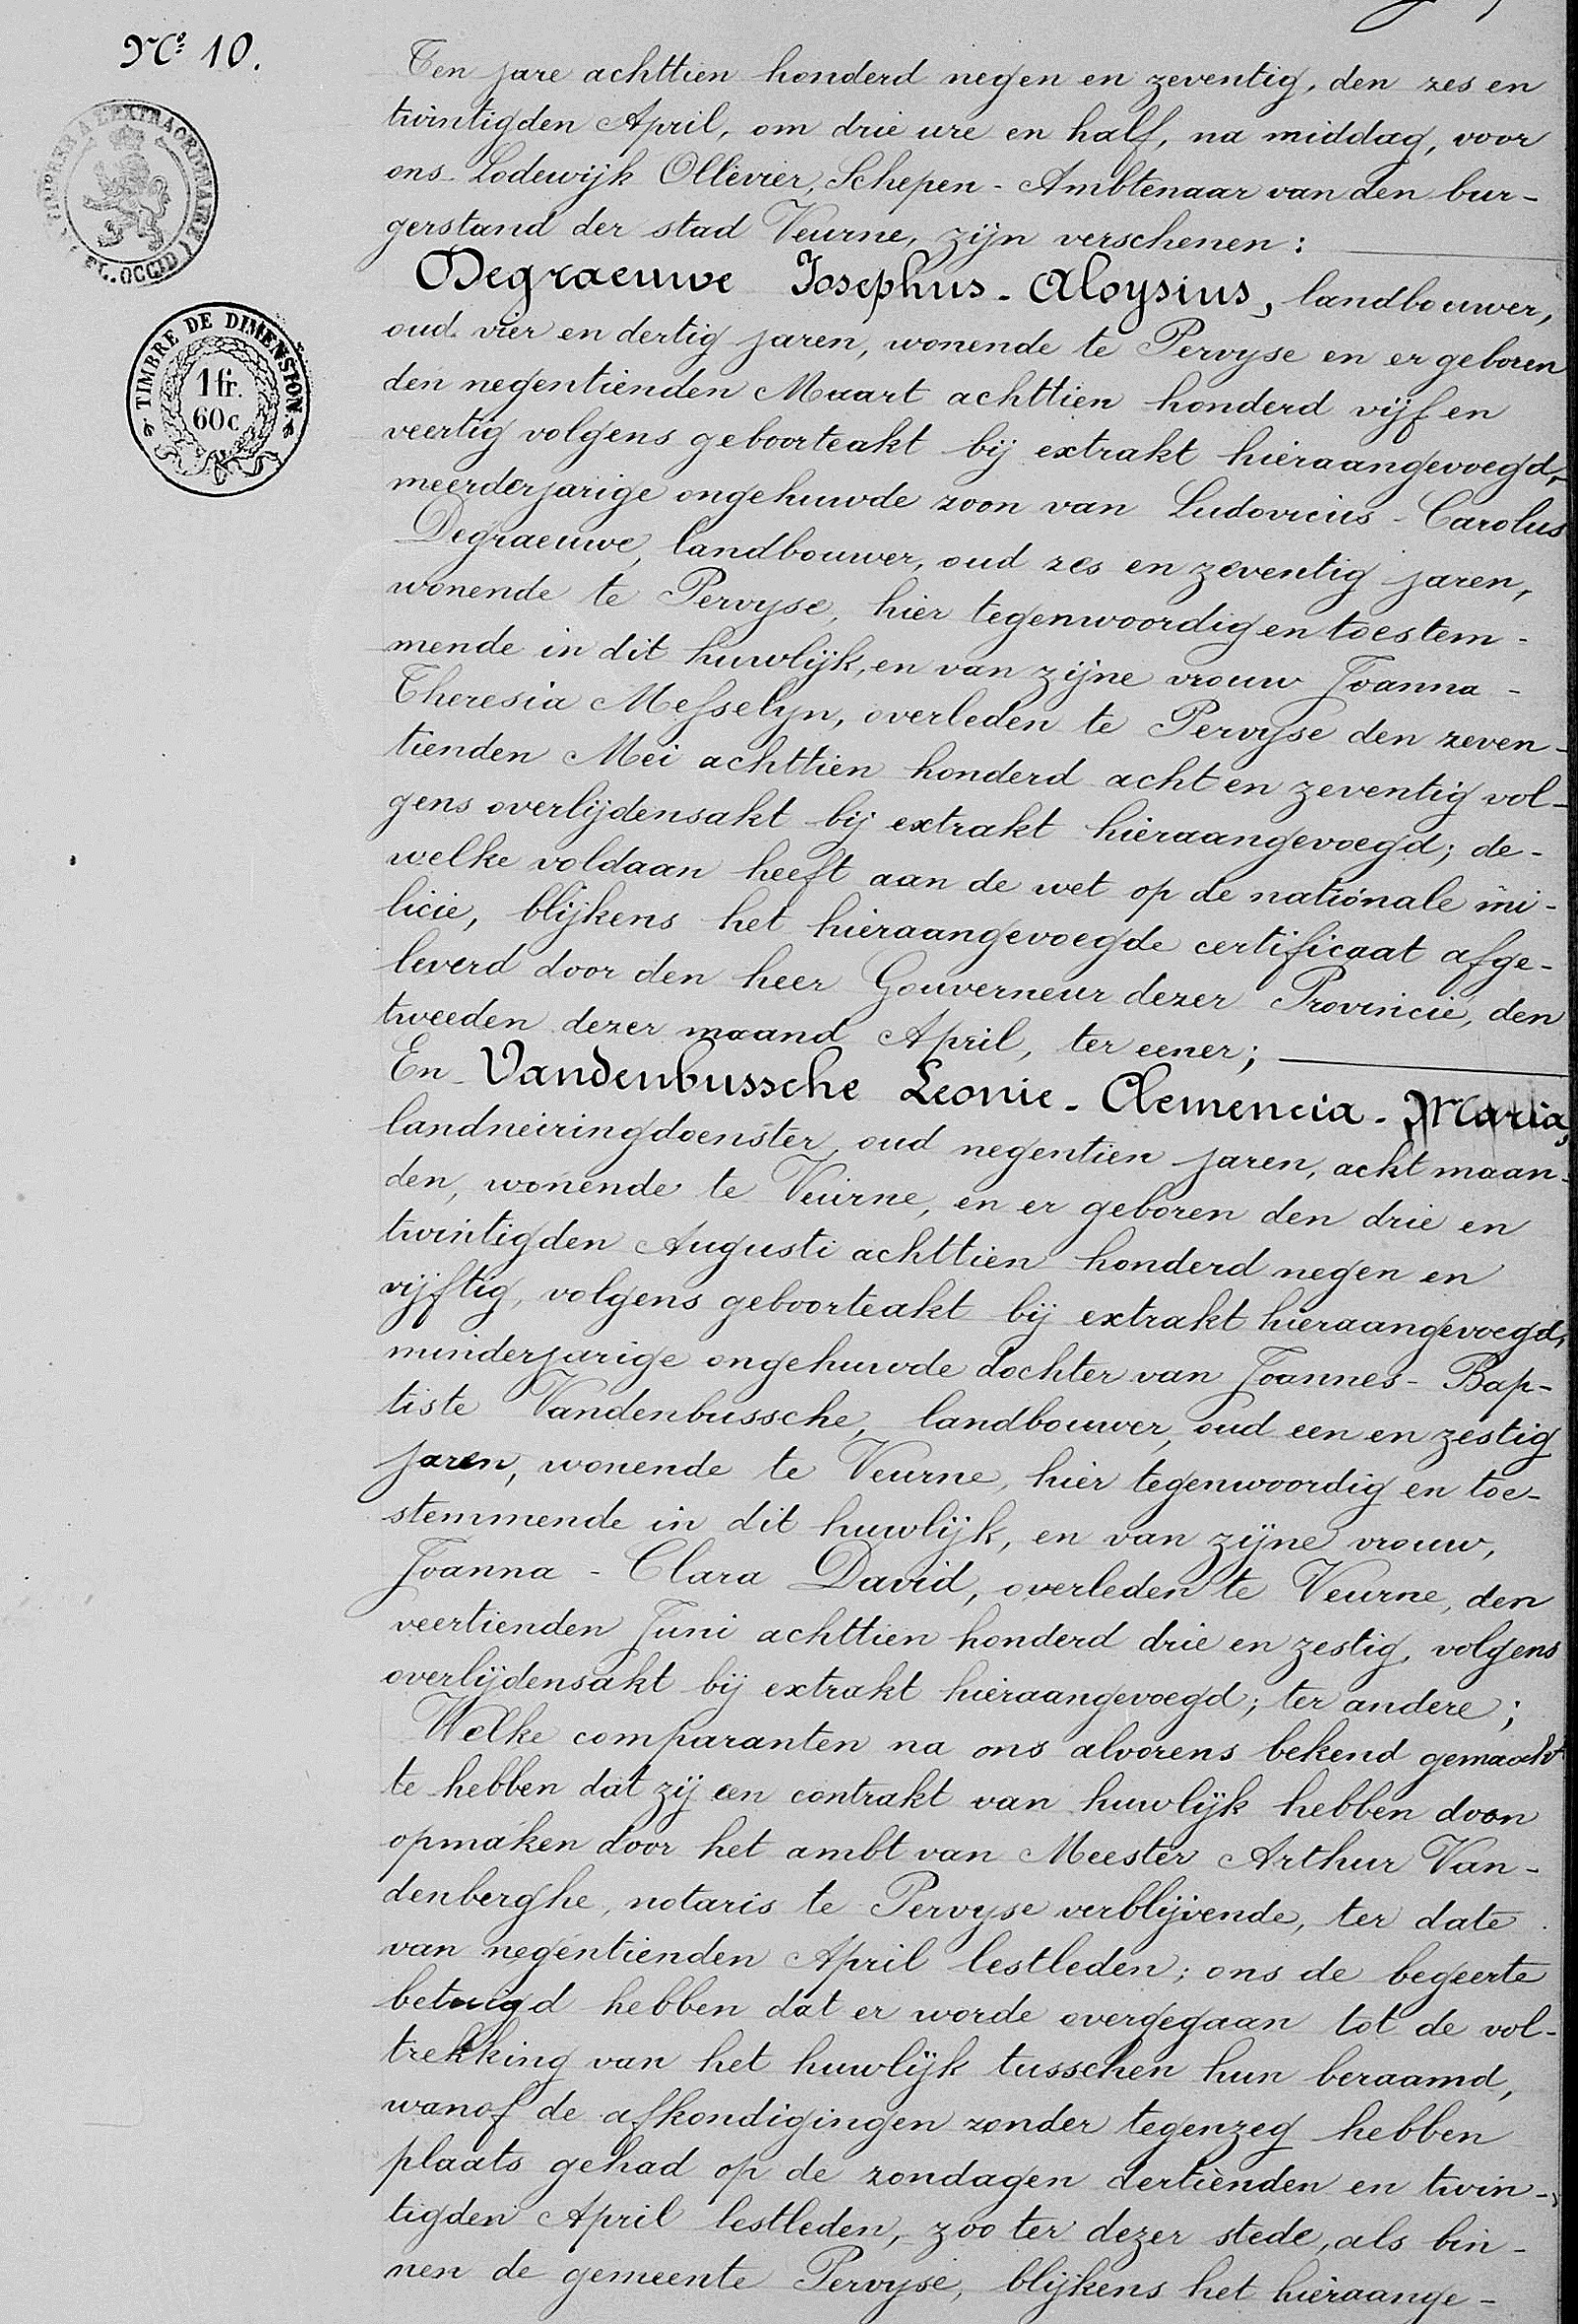 No 10.
TIMBRE DE DIMENSION.
1 fr.
60 c
Ten jare achttien honderd negen en zeventig, den zes en
twintigden April, om drie ure en half, na middag, voor
ons Lodewijk Ollevier, Schepen-Ambtenaar van den bur-
gerstand der stad Veurne, zijn verschenen:
Degraeuwe Josephus-Aloysius, landbouwer,
oud vier en dertig jaren, wonende te Pervyse en er geboren
den negentienden Maart achttien honderd vijf en
veertig volgens geboorteakt bij extrakt hieraangevoegd,
meerderjarige ongehuwde zoon van Ludovicus-Carolus
Degraeuwe, landbouwer, oud zes en zeventig jaren,
wonende te Pervyse, hier tegenwoordig en toestem-
mende in dit huwlijk, en van zijne vrouw Joanna-
Theresia Messelyn, overleden te Pervyse den zeven-
tienden Mei achttien honderd acht en zeventig vol-
gens overlijdensakt bij extrakt hieraangevoegd; de-
welke voldaan heeft aan de wet op de nationale mi-
licie, blijkens het hieraangevoegde certificaat afge-
leverd door den heer Gouverneur dezer Provincie, den
tweeden dezer maand April, ter eener;
En Vandenbussche Leonie-Clemencia-Maria,
landneiringdoenster, oud negentien jaren, acht maan-
den, wonende te Veurne, en er geboren den drie en
twintigden Augusti achttien honderd negen en
vijftig, volgens geboorteakt bij extrakt hieraangevoegd,
minderjarige ongehuwde dochter van Joannes-Bap-
tiste Vandenbussche, landbouwer, oud een en zestig
jaren, wonende te Veurne, hier tegenwoordig en toe-
stemmende in dit huwlijk, en van zijne vrouw,
Joanna-Clara David, overleden te Veurne, den
veertienden Juni achttien honderd drie en zestig, volgens
overlijdensakt bij extrakt hieraangevoegd; ter andere;
Welke comparanten na ons alvorens bekend gemaakt
te hebben dat zij een contrakt van huwlijk hebben doen
opmaken door het ambt van Meester Arthur Van-
denberghe, notaris te Pervyse verblijvende, ter date
van negentienden April lestleden; ons de begeerte
betuigd hebben dat er worde overgegaan tot de vol-
trekking van het huwlijk tusschen hun beraamd,
wanof de afkondigingen zonder tegenzeg hebben
plaats gehad op de zondagen dertienden en twin-
tigden April lestleden, zoo ter dezer stede, als bin-
nen de gemeente Pervyse, blijkens het hieraange-